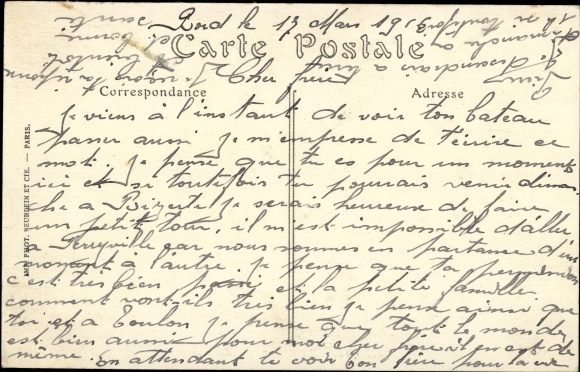 Bord le 13 Mars 19
Carte Postale
Cher frère
Correspondance
Adresse
Je viens à l'instant de voir ton bateau
passer aussi je m'empresse de t'écrire ce
mot. je pense que tu es pour un moment
ici et si toutefois tu pouvais venir diman
che a Bizerte je serais heureuse de faire
un petit tour, il m'est impossible d'aller
a Ferryville car nous sommes en partance d'un
moment à l'autre je pense que ta permission
c'est très bien passée et a petite famille
comment vont-ils très bien je pense ainsi que
toi et a Toulon je pense que tout le monde
est bien aussi pour moi cher frère il en est de
même. En attendant te voir ton frère pour la vie
IMP. PHOT. NEURDEIN ET CIE. — PARIS.